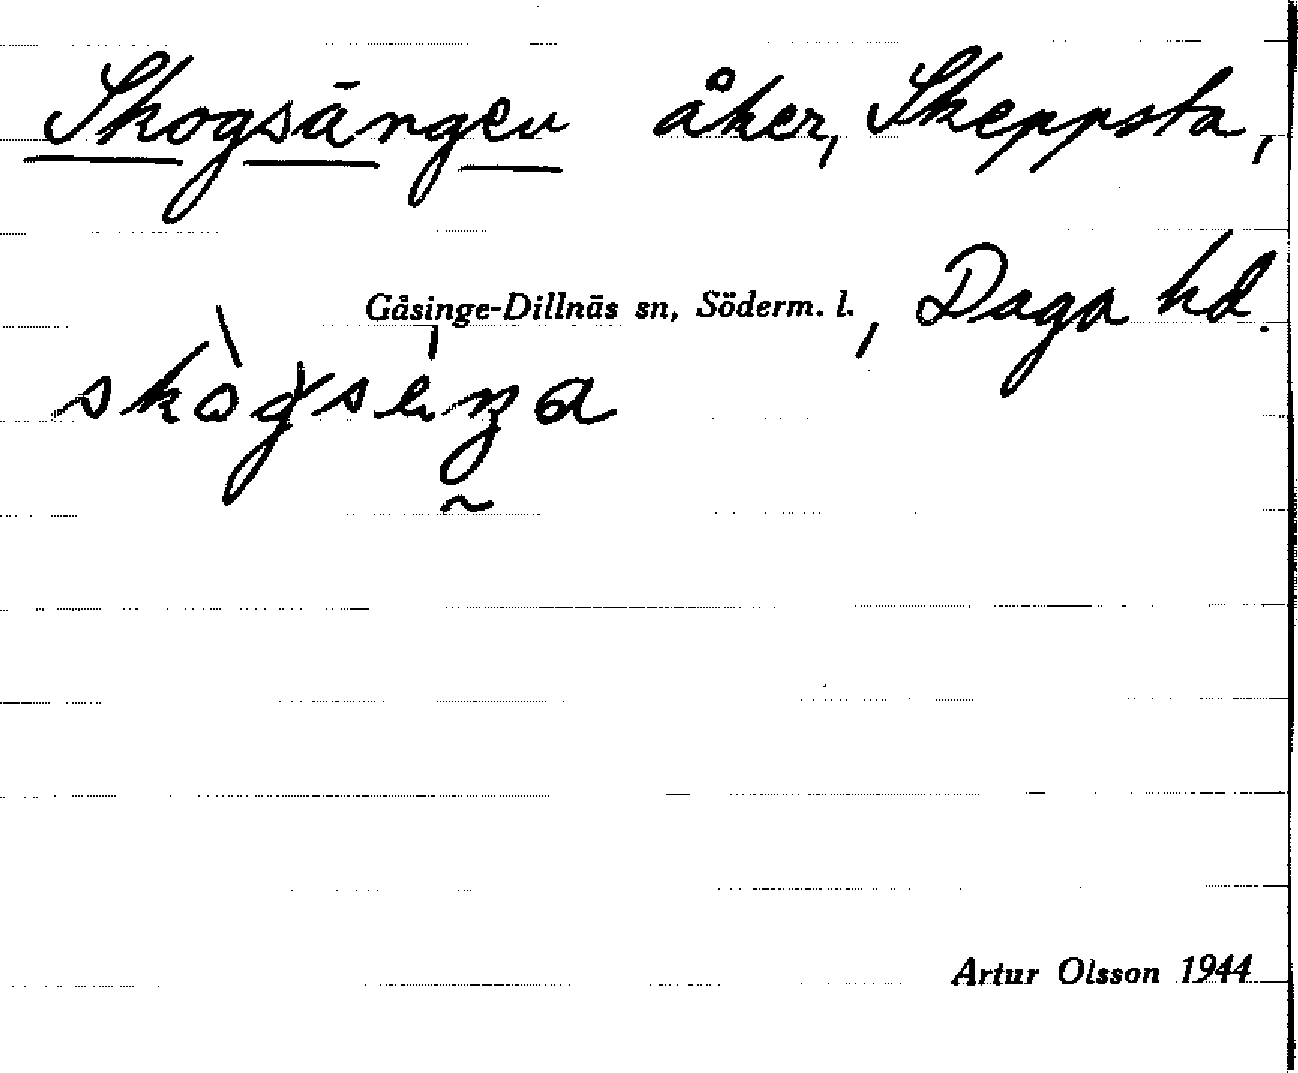 Skogsängen åker, Skeppsta,
Gåsinge-Dillnäs sn, Söderm. l., Daga hd.
Artur Olsson 1944